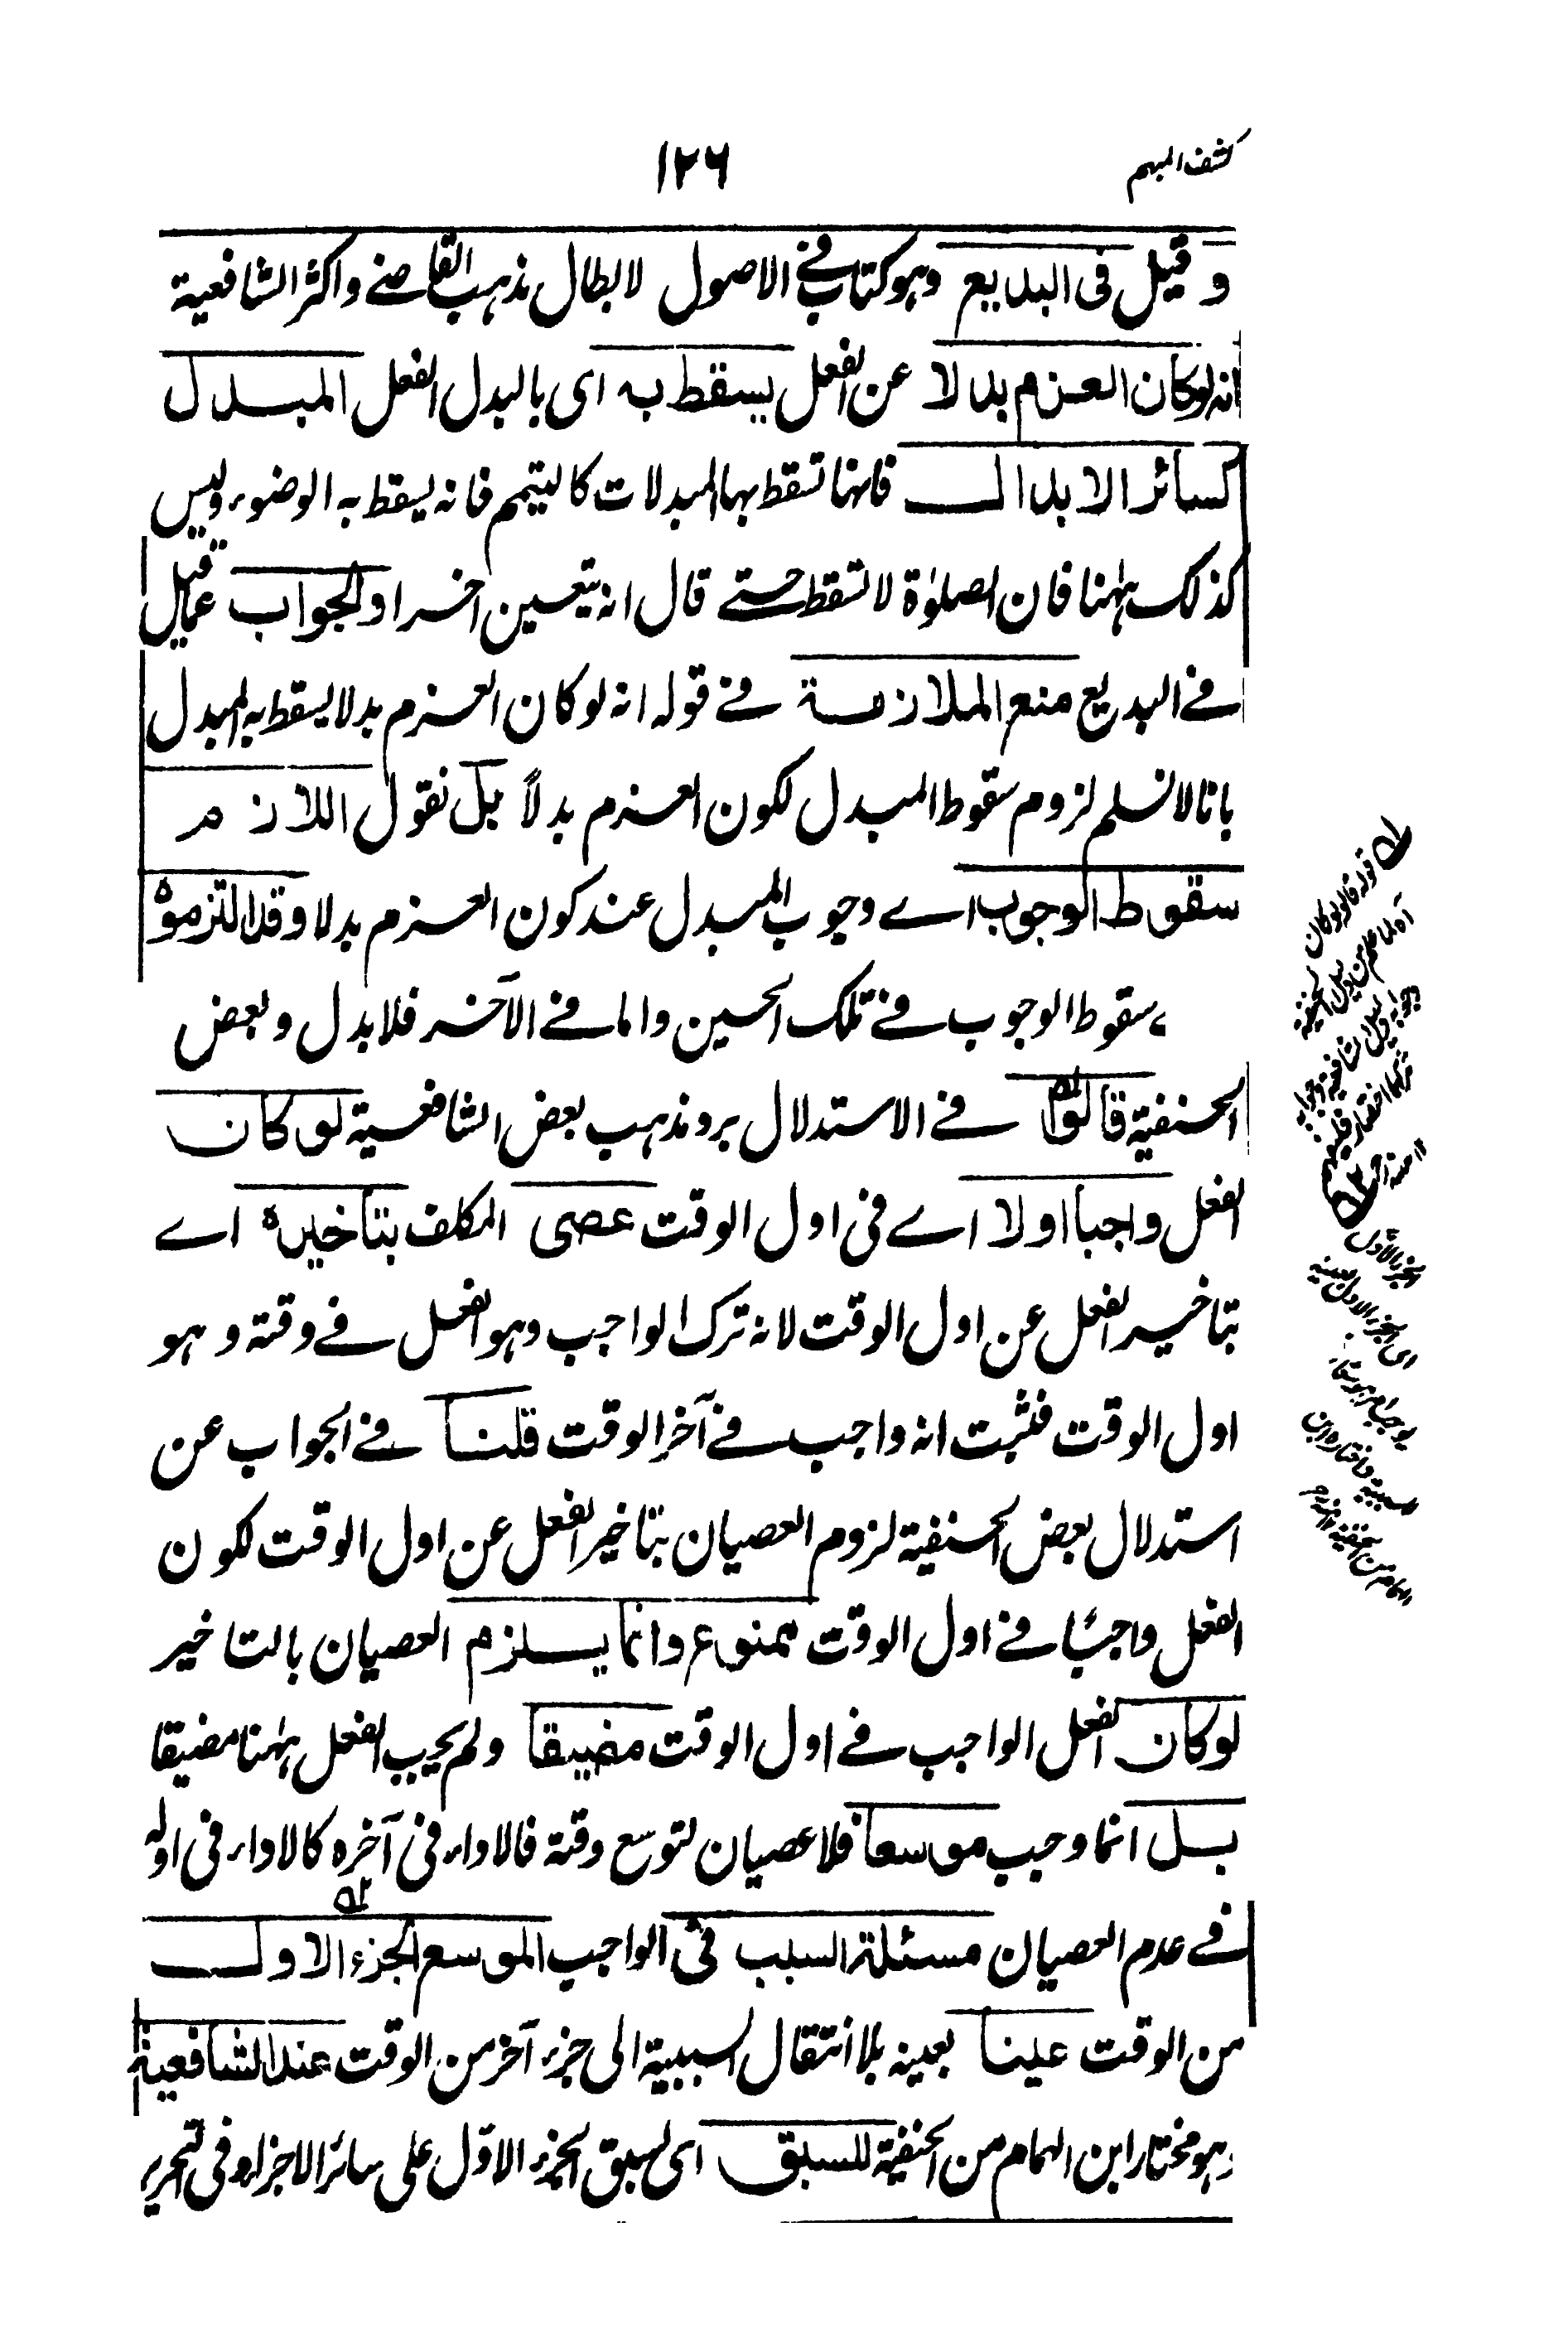 كشف المبهم
١٢٦
و قيل فى البديع وهو كتاب في الاصول لابطال مذهب القاضے واكثر الشافعية
انه لوكان العزم بدلا عن الفعل يسقط به اى بالبدل الفعل المبدل
كسائر الابدال فانها تسقط بها المبدلات كالتيمم فانه يسقط به الوضوء وليس
كذلك ههنا فان الصلوٰة لا تسقط حتے قال انه يتعين اخرا والجواب عما قيل
فے البديع منع الملازمة فے قوله انه لوكان العزم بدلا يسقط به المبدل
بانا لا نسلم لزوم سقوط المبدل لكون العزم بدلاً بل نقول اللازم
سقوط الوجوب اے وجوب المبدل عند كون العزم بدلا وقد التزموه
ء سقوط الوجوب فے تلك الحين واما فے الآخر فلا بدل وبعض
الحنفية قالوا فے الاستدلال برد مذهب بعض الشافعية لو كان
الفعل واجبا اولا اے فى اول الوقت عصى المكلف بتاخيره اے
بتاخير الفعل عن اول الوقت لانه ترك الواجب وهو الفعل فے وقته وهو
اول الوقت فثبت انه واجب فے آخر الوقت قلنا فے الجواب عن
استدلال بعض الحنفية لزوم العصيان بتاخير الفعل عن اول الوقت لكون
الفعل واجبًا فے اول الوقت ممنوع وانما يلزم العصيان بالتاخير
لو كان الفعل الواجب فے اول الوقت مضيقا ولم يجب الفعل ههنا مضيقا
بل انما وجب موسعا فلا عصيان لتوسع وقته فالاداء فى آخره كالاداء فى اوله
فے عدم العصيان مسئلة السبب فى الواجب الموسع الجزء الاول
من الوقت عينا بعينه بلا انتقال السببية الى جزء آخر من الوقت عند الشافعية
وهو مختار ابن الهمام من الحنفية للسبق اى لسبق الجزء الاوّل على سائر الاجزاء وفى التحرير
قوله قالوا لو كان
١٢ منه